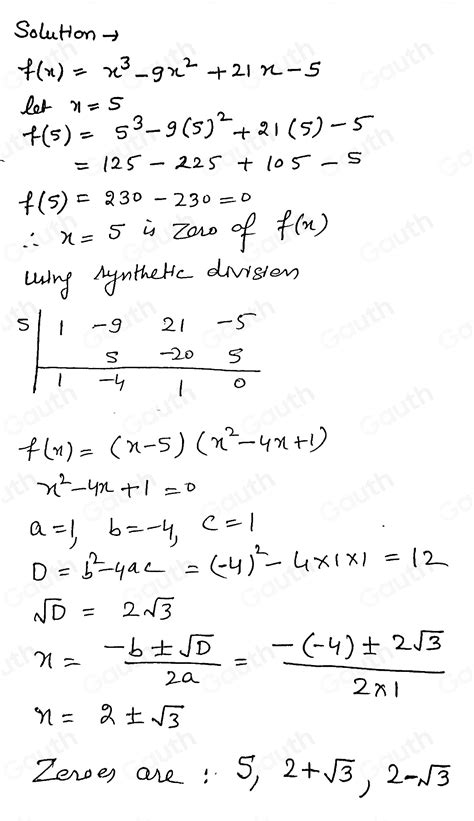 Solution →
f(x) = x³ - 9x² + 21x - 5
let x = 5
f(5) = 5³ - 9(5)² + 21(5) - 5
= 125 - 225 + 105 - 5
f(5) = 230 - 230 = 0
∴ x = 5 is zero of f(x)
using synthetic division
5 | 1 -9 21 -5
5 -20 5
1 -4 1 0
f(x) = (x-5) (x² - 4x + 1)
x² - 4x + 1 = 0
a = 1, b = -4, c = 1
D = b² - 4ac = (-4)² - 4×1×1 = 12
√D = 2√3
x = (-b ± √D)/2a = (-(-4) ± 2√3)/2×1
x = 2 ± √3
Zeroes are : 5, 2+√3, 2-√3